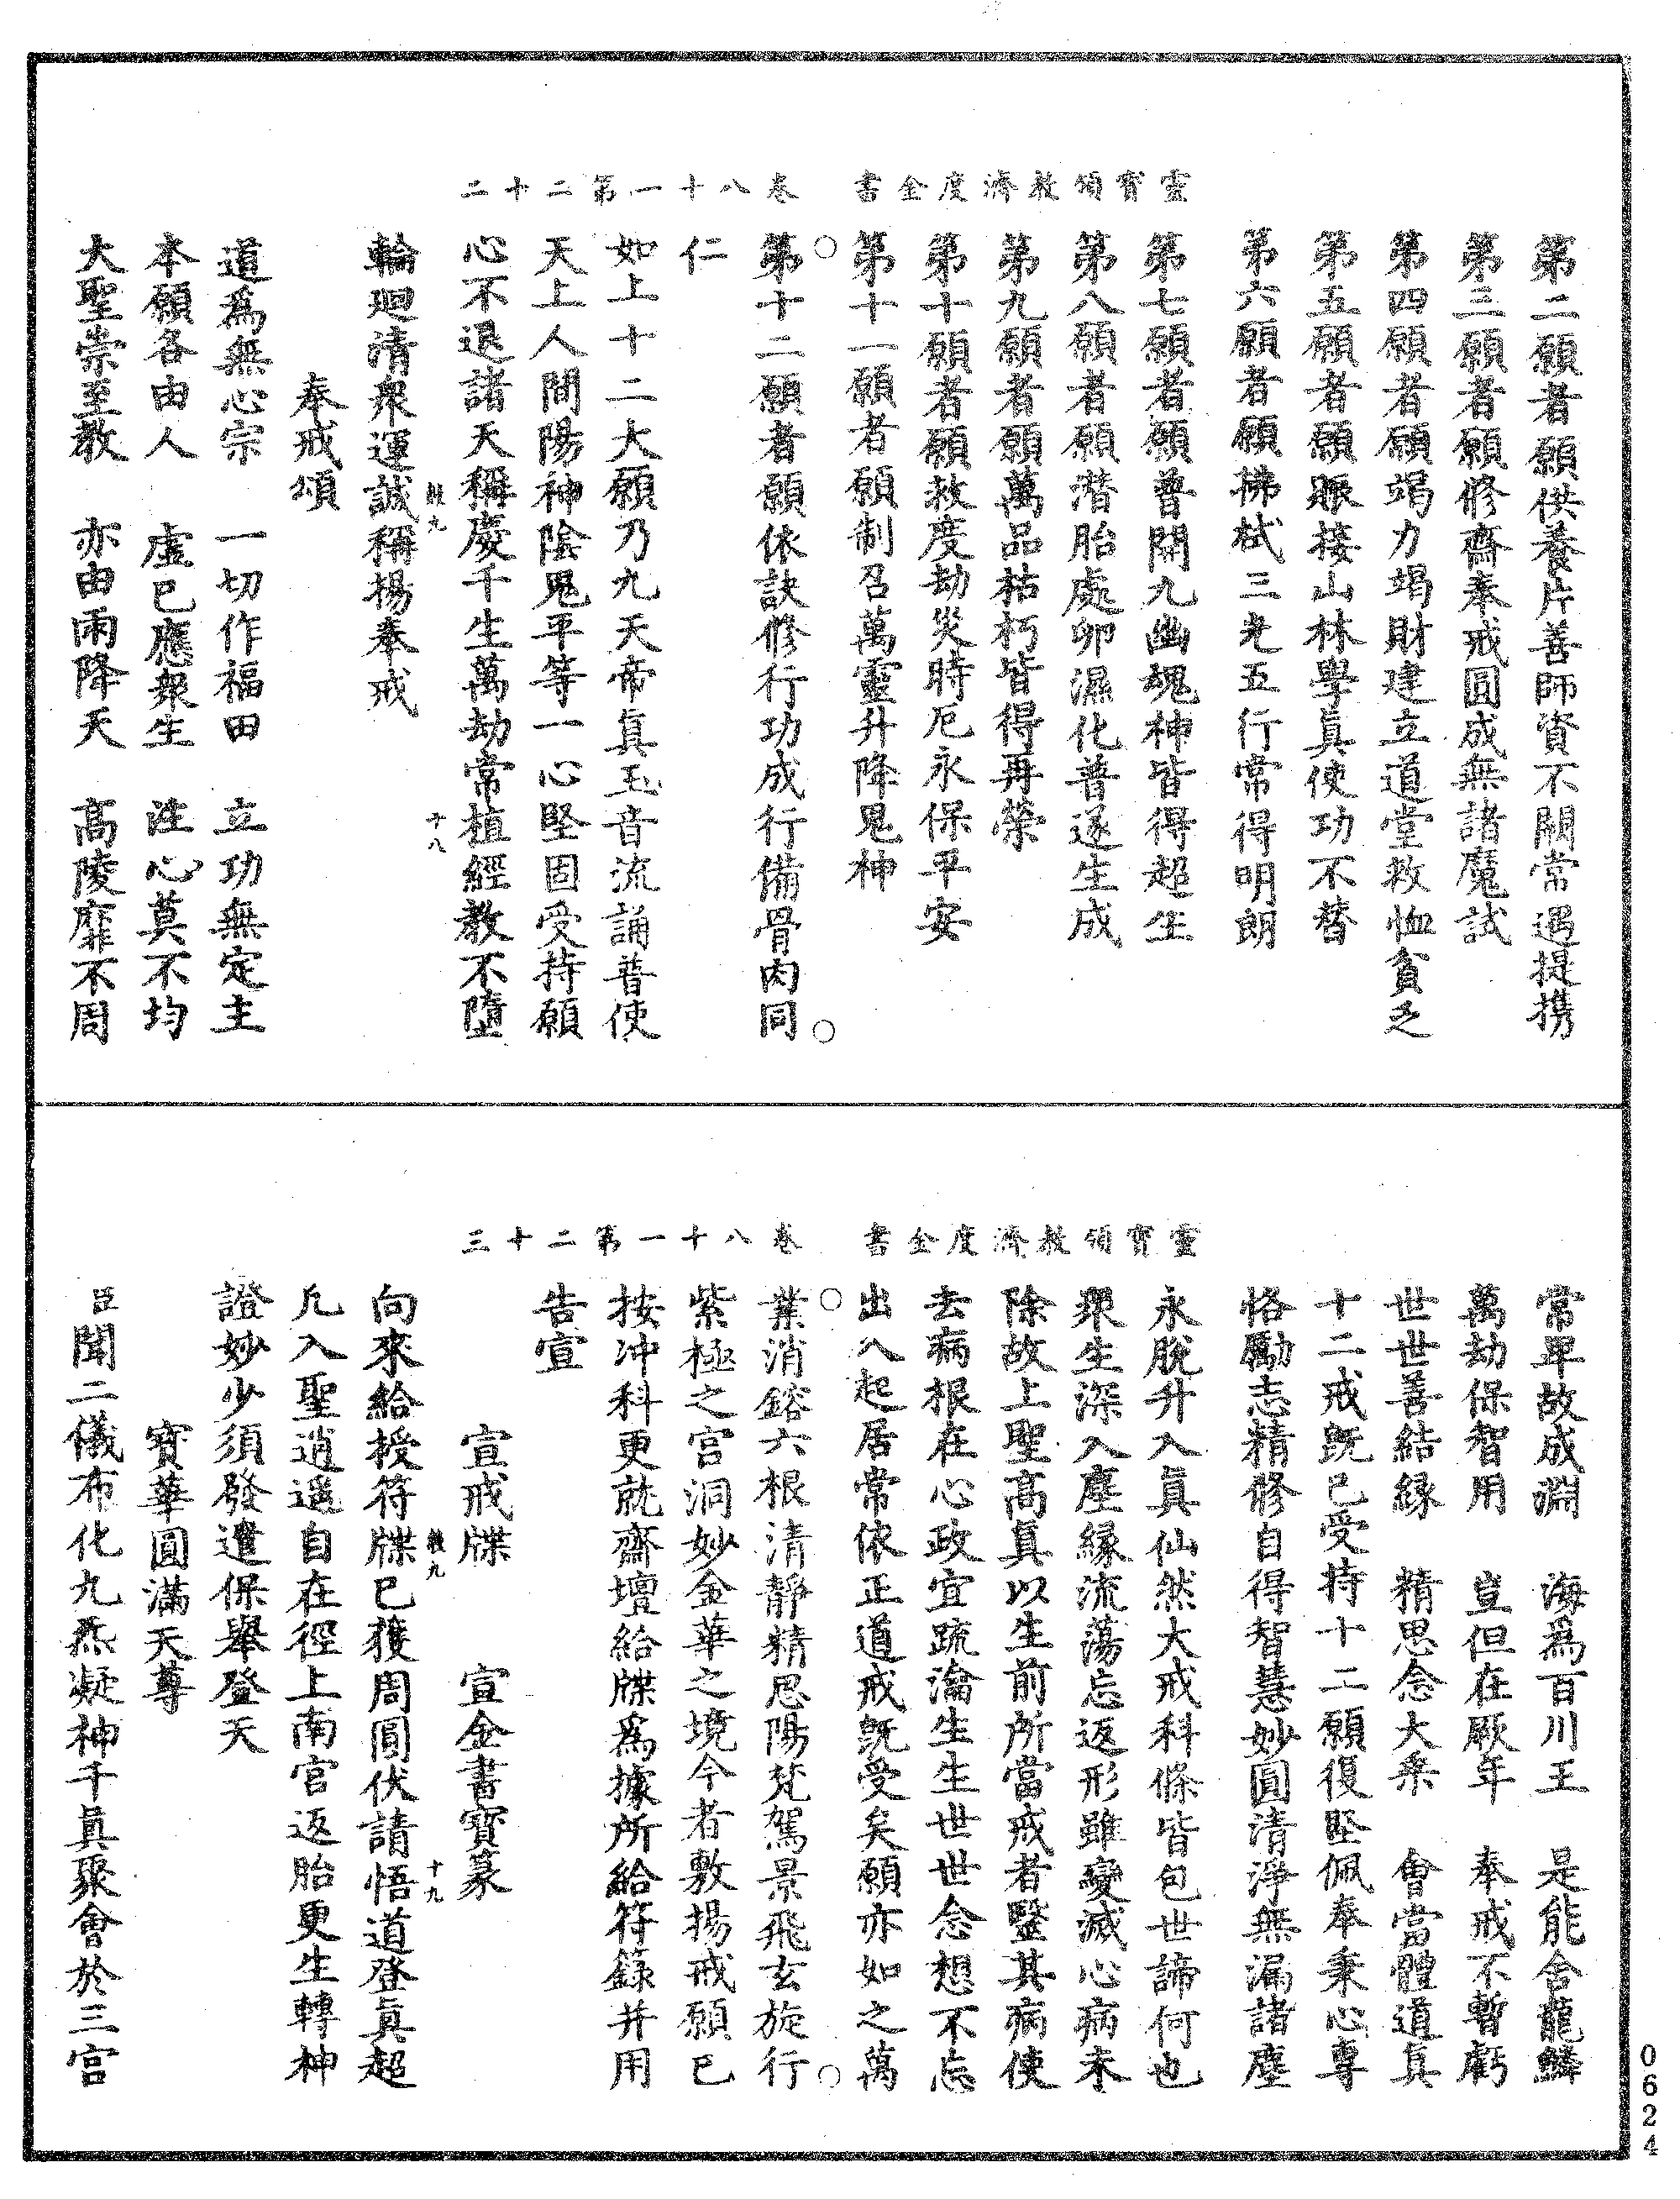 靈寶領教濟度金書　卷八十一第二十二
第二願者願供養片善師資不闕常遇提攜
第三願者願修齋奉戒圓成無諸魔試
第四願者願竭力竭財建立道堂救恤貧乏
第五願者願賑接山林學眞使功不替
第六願者願拂拭三光五行常得明朗
第七願者願普開九幽魂神皆得超生
第八願者願潛胎處卵濕化普遂生成
第九願者願萬品枯朽皆得再榮
第十願者願救度劫災時厄永保平安
第十一願者願制召萬靈升降鬼神
第十二願者願依訣修行功成行備骨肉同
仁
如上十二大願乃九天帝眞玉音流誦普使
天上人間陽神陰鬼平等一心堅固受持願
心不退諸天稱慶千生萬劫常植經教不墮
九　十八
輪廻清衆運誠稱揚奉戒
奉戒頌
道爲無心宗　一切作福田　立功無定主
本願各由人　虛已應衆生　注心莫不均
大聖崇至教　亦由雨降天　高陵靡不周
靈寶領教濟度金書　卷八十一第二十三
常卑故成淵　海爲百川王　是能舍龍鱗
萬劫保智用　豈但在厥年　奉戒不暫虧
世世善結緣　精思念大乘　會當體道眞
十二戒旣已受持十二願復堅佩奉秉心專
恪勵志精修自得智慧妙圓清淨無漏諸塵
永脫升入眞仙然大戒科條皆包世諦何也
衆生深入塵緣流蕩忘返形雖變滅心病未
除故上聖高眞以生前所當戒者鑒其病使
去病根在心政宜疏瀹生生世世念想不忘
出入起居常依正道戒旣受矣願亦如之萬
業消鎔六根清靜精思陽梵駕景飛玄旋行
紫極之宮洞妙金華之境今者敷揚戒願已
按冲科更就齋壇給牒爲據所給符籙并用
告宣
宣戒牒　宣金書寶篆
九　十九
向來給授符牒已獲周圓伏請悟道登眞超
凡入聖逍遙自在徑上南宮返胎更生轉神
證妙少須發遣保舉登天
寶華圓滿天尊
臣聞二儀布化九炁凝神千眞聚會於三宮
0624